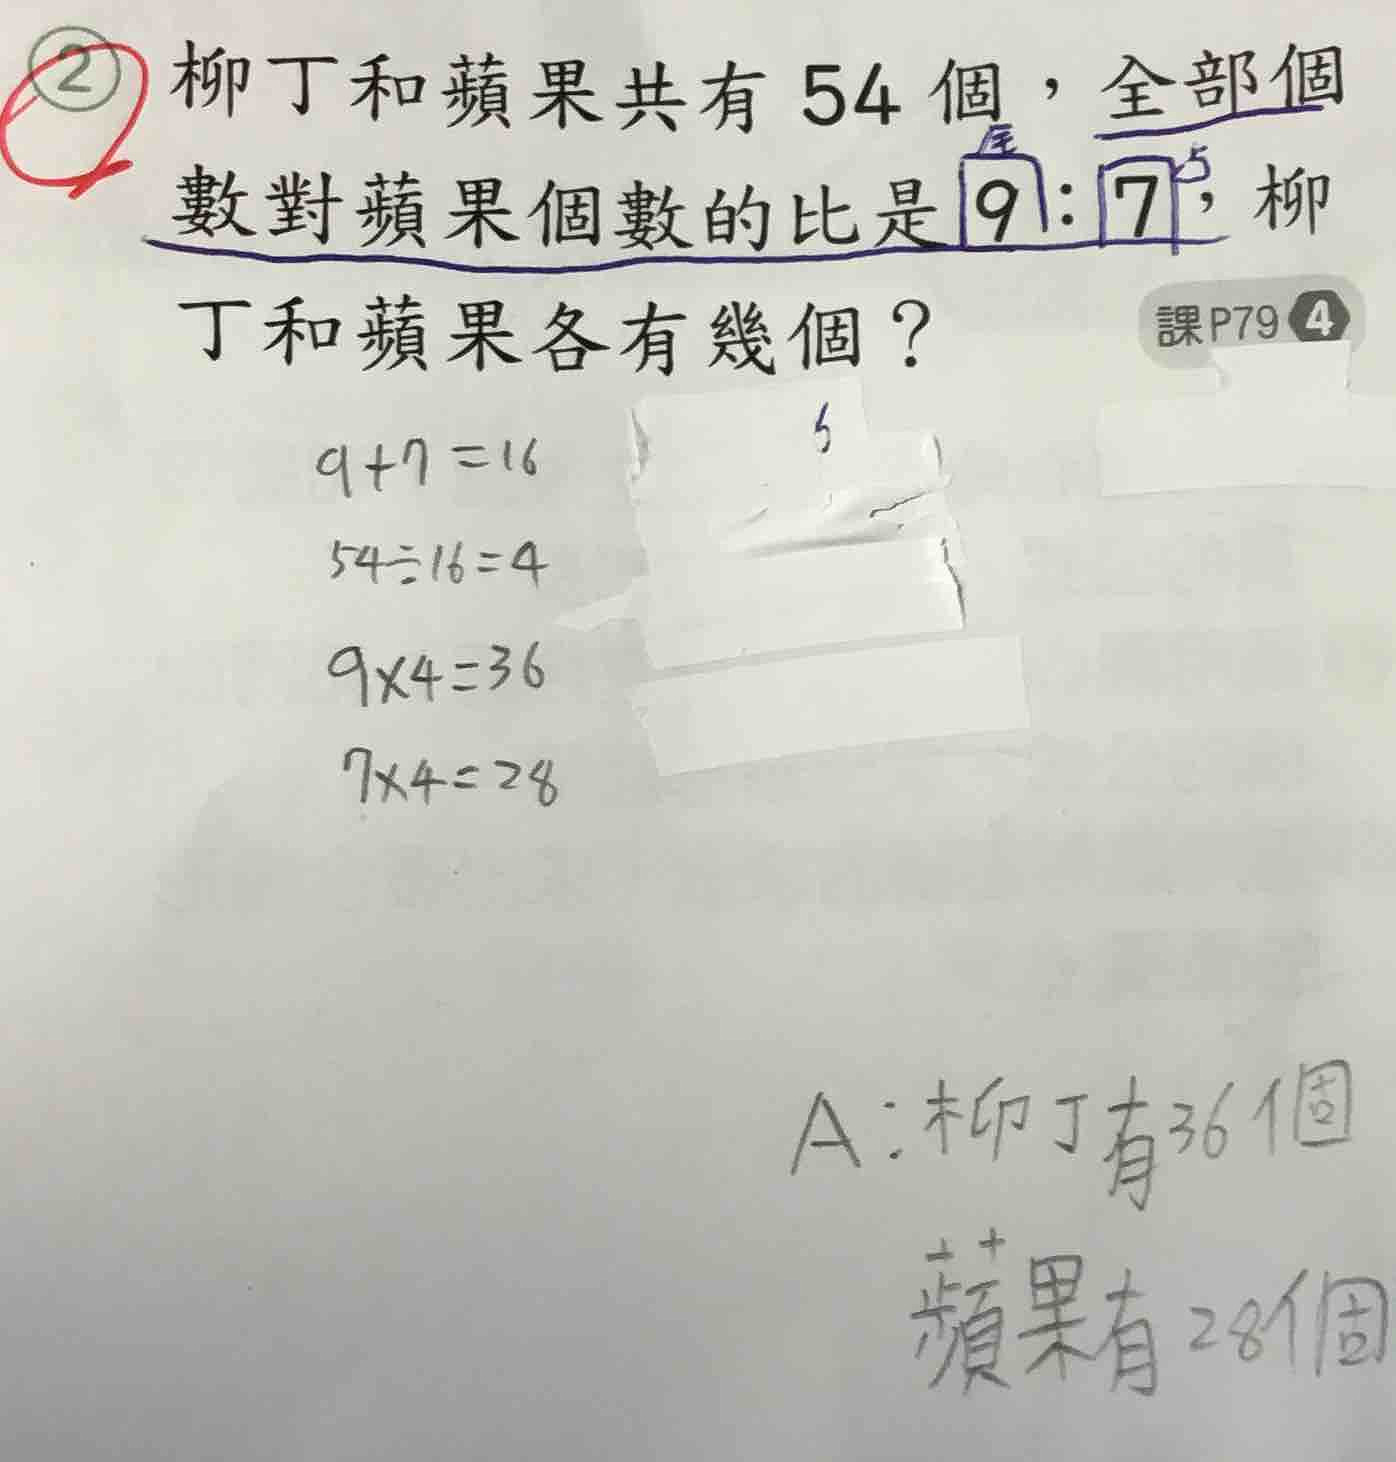 ② 柳丁和蘋果共有 54 個，全部個
數對蘋果個數的比是 9：7，柳
丁和蘋果各有幾個？
課P79 4
9+7=16
54÷16=4
9×4=36
7×4=28
A：柳丁有36個
蘋果有28個